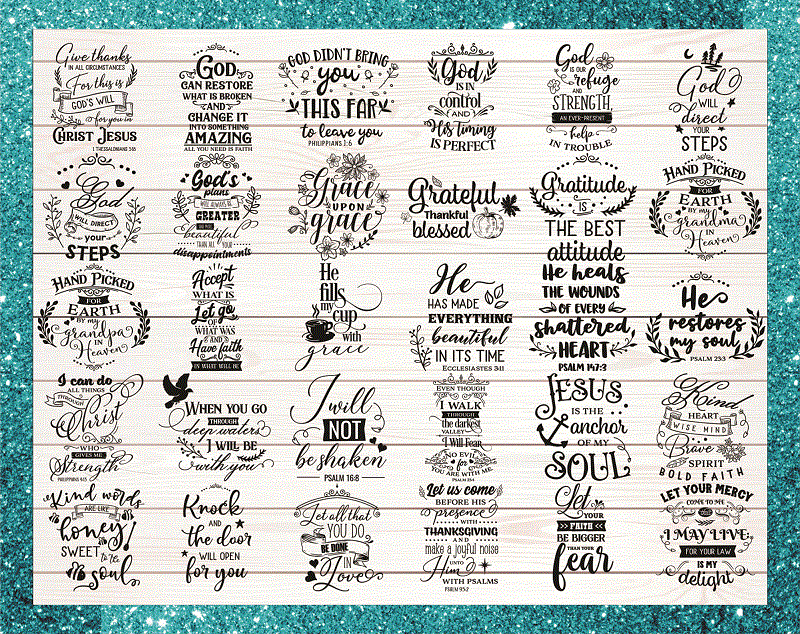 Give thanks
IN ALL CIRCUMSTANCES
For this is
GOD'S WILL
for you in
CHRIST JESUS
1 THESSALONIANS 5:18
GOD
CAN RESTORE
WHAT IS BROKEN
AND
CHANGE IT
INTO SOMETHING
AMAZING
ALL YOU NEED IS FAITH
GOD DIDN'T BRING
you
THIS FAR
to leave you
PHILIPPIANS 1:6
God
IS IN
control
AND
His timing
IS PERFECT
God
IS OUR
refuge
AND
STRENGTH,
AN EVER-PRESENT
help
IN TROUBLE
God
WILL
direct
YOUR
STEPS
God
WILL DIRECT
your
STEPS
God's
plans
WILL ALWAYS BE
GREATER
AND MORE
beautiful
THAN ALL YOUR
disappointments
Grace
UPON
grace
Grateful
Thankful
blessed
Gratitude
IS
THE BEST
attitude
HAND PICKED
FOR
EARTH
by my
Grandma
IN
Heaven
HAND PICKED
FOR
EARTH
by my
Grandpa
IN
Heaven
Accept
WHAT IS
Let go
OF
WHAT WAS
AND
Have faith
IN WHAT WILL BE
He
fills
my
cup
with
grace
He
HAS MADE
EVERYTHING
beautiful
IN ITS TIME
ECCLESIASTES 3:11
He heals
THE WOUNDS
OF EVERY
shattered
HEART
PSALM 147:3
He
restores
my soul
PSALM 23:3
I can do
ALL THINGS
THROUGH
Christ
WHO
GIVES ME
Strength
PHILIPPIANS 4:13
WHEN YOU GO
THROUGH
deep waters
I WILL BE
with you
I will
NOT
be shaken
PSALM 16:8
EVEN THOUGH
I WALK
THROUGH
the darkest
VALLEY
I Will Fear
NO EVIL
for
YOU ARE WITH ME
PSALM 23:4
JESUS
IS THE
anchor
OF MY
SOUL
Kind
HEART
WISE MIND
Brave
SPIRIT
BOLD FAITH
Kind words
ARE LIKE
honey
SWEET to the
soul
Knock
AND
the door
WILL OPEN
for you
Let all that
YOU DO
BE DONE
IN
Love
Let us come
BEFORE HIS
presence
WITH
THANKSGIVING
AND
make a joyful noise
UNTO
Him
WITH PSALMS
PSALM 95:2
Let
YOUR
FAITH
BE BIGGER
THAN YOUR
fear
LET YOUR MERCY
COME TO ME
I MAY LIVE
FOR YOUR LAW
IS MY
delight